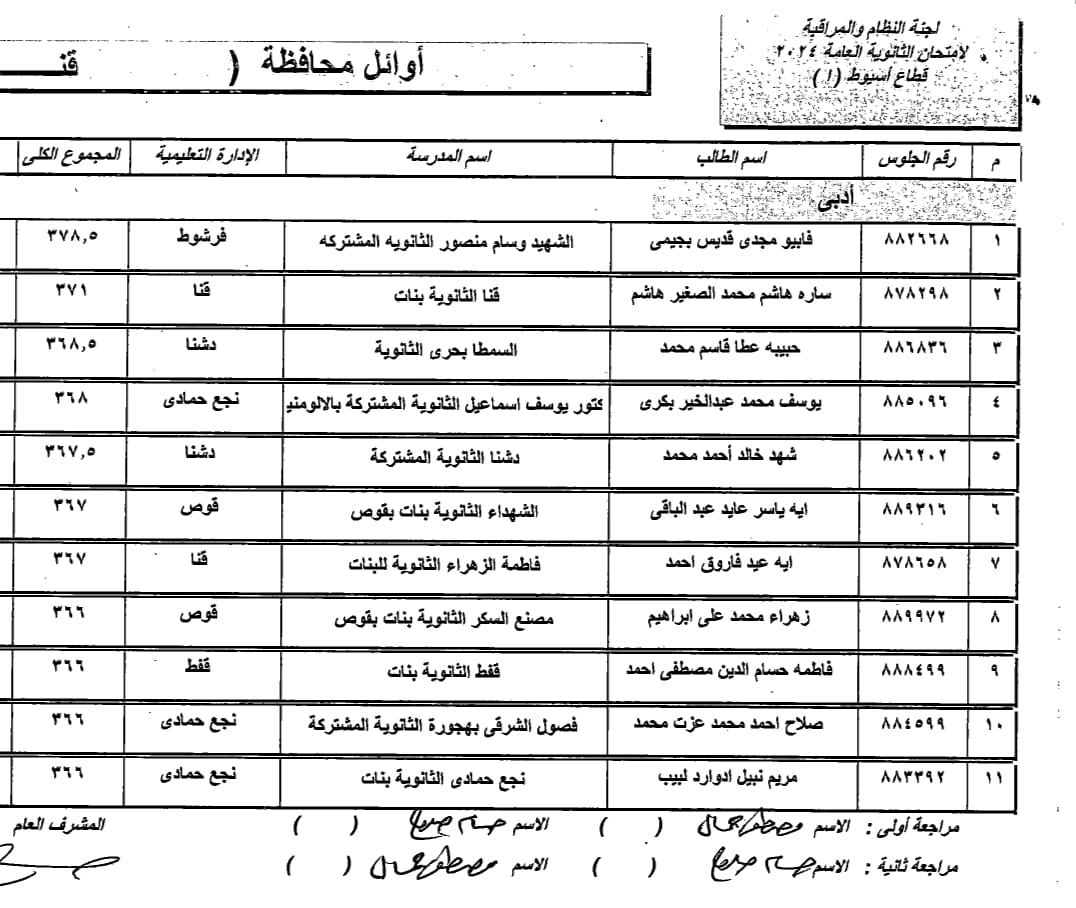 لجنة النظام والمراقبة
لامتحان الثانوية العامة ٢٠٢٤
قطاع أسيوط (١)
أوائل محافظة ( قنـــ
م رقم الجلوس اسم الطالب اسم المدرسة الإدارة التعليمية المجموع الكلى
أدبى
١ ٨٨٢٦٦٨ فابيو مجدى قديس بجيمى الشهيد وسام منصور الثانويه المشتركه فرشوط ٣٧٨,٥
٢ ٨٧٨٢٩٨ ساره هاشم محمد الصغير هاشم قنا الثانوية بنات قنا ٣٧١
٣ ٨٨٦٨٣٦ حبيبه عطا قاسم محمد السمطا بحرى الثانوية دشنا ٣٦٨,٥
٤ ٨٨٥٠٩٦ يوسف محمد عبدالخير بكرى كتور يوسف اسماعيل الثانوية المشتركة بالالومني نجع حمادى ٣٦٨
٥ ٨٨٦٢٠٢ شهد خالد أحمد محمد دشنا الثانوية المشتركة دشنا ٣٦٧,٥
٦ ٨٨٩٣١٦ ايه ياسر عايد عبد الباقى الشهداء الثانوية بنات بقوص قوص ٣٦٧
٧ ٨٧٨٦٥٨ ايه عيد فاروق احمد فاطمة الزهراء الثانوية للبنات قنا ٣٦٧
٨ ٨٨٩٩٧٢ زهراء محمد على ابراهيم مصنع السكر الثانوية بنات بقوص قوص ٣٦٦
٩ ٨٨٨٤٩٩ فاطمه حسام الدين مصطفى احمد قفط الثانوية بنات قفط ٣٦٦
١٠ ٨٨٤٥٩٩ صلاح احمد محمد عزت محمد فصول الشرقى بهجورة الثانوية المشتركة نجع حمادى ٣٦٦
١١ ٨٨٣٣٩٢ مريم نبيل ادوارد لبيب نجع حمادى الثانوية بنات نجع حمادى ٣٦٦
مراجعة أولى : الاسم ( ) الاسم ( ) المشرف العام
مراجعة ثانية : الاسم ( ) الاسم ( )